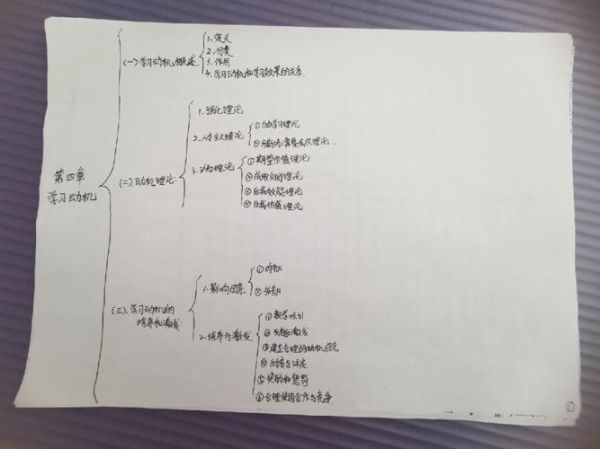 第四章
学习动机
(一)学习动机概述
1.定义
2.分类
3.作用
4.学习动机和学习效果的关系
(二)动机理论
1.强化理论
2.人本主义理论
①自由学习理论
②马斯洛需要层次理论
3.认知理论
①期望价值理论
②成败归因理论
③自我效能理论
④自我价值理论
(三)学习动机的
培养和激发
1.影响因素
①内部
②外部
2.培养与激发
①教学吸引
②兴趣激发
③建立合理的动机信念
④反馈与评定
⑤奖励和惩罚
⑥合理使用合作与竞争